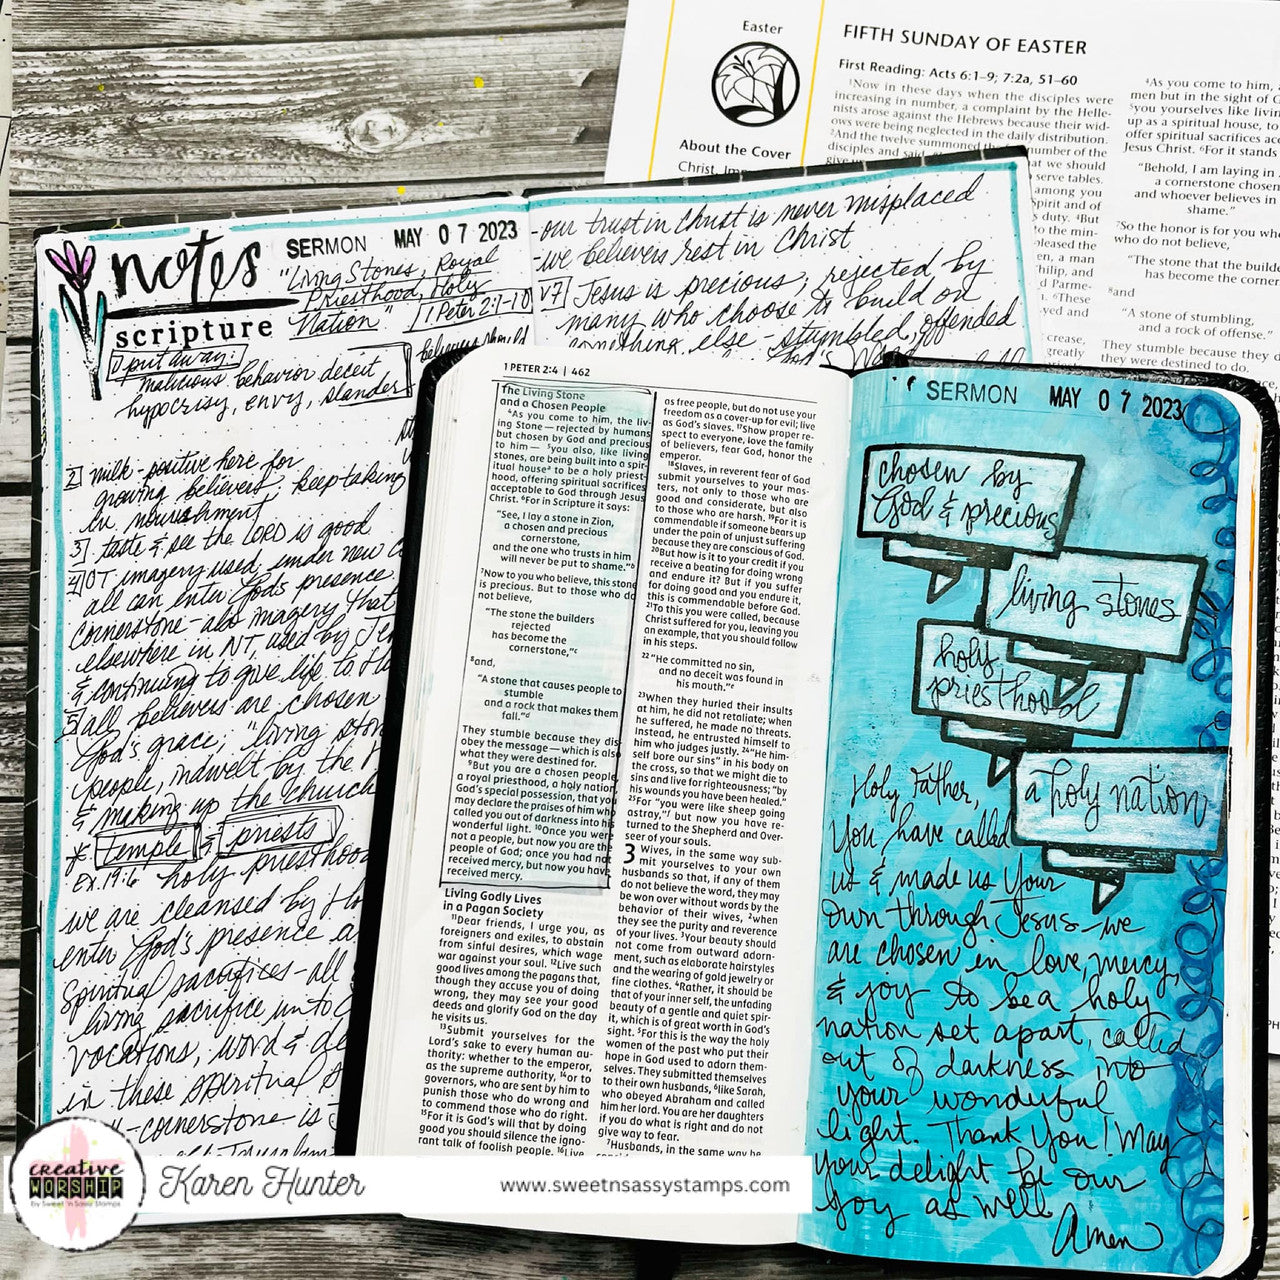 Easter
About the Cover
Christ, Im
FIFTH SUNDAY OF EASTER
First Reading: Acts 6:1–9; 7:2a, 51–60
¹Now in these days when the disciples were
increasing in number, a complaint by the Helle-
nists arose against the Hebrews because their wid-
ows were being neglected in the daily distribution.
²And the twelve summoned the number of the
disciples and said,
at we should
serve tables.
among you
pirit and of
s duty. ⁴But
to the min-
pleased the
en, a man
Philip, and
d Parme-
⁶These
yed and
crease,
greatly
⁴As you come to him,
men but in the sight of G
⁵you yourselves like livin
up as a spiritual house, to
offer spiritual sacrifices acc
Jesus Christ. ⁶For it stands
"Behold, I am laying in
a cornerstone chosen
and whoever believes in
shame."
⁷So the honor is for you wh
who do not believe,
"The stone that the builde
has become the corner
⁸and
"A stone of stumbling,
and a rock of offense."
They stumble because they
were destined to do.
notes
scripture
SERMON MAY 07 2023
"Living Stones, Royal
Priesthood, Holy
Nation"
1 Peter 2:1-10
believers should
1 put away:
malicious behavior deceit
hypocrisy, envy, slander
2 milk - positive here for
growing believers, keep taking
in nourishment
3 taste & see the LORD is good
4 OT imagery used, under new C
all can enter God's presence
cornerstone - also imagery that
elsewhere in NT, used by Je
& continuing to give life to
5 all believers are chosen
God's grace; "living ston
people, indwelt by the H
& making up the church
* temple & priests
Ex. 19:6 holy priesthood
we are cleansed by
enter God's presence a
spiritual sacrifices - all
living sacrifice unto
vocations, word & de
in these spiritual s
-cornerstone is
- our trust in Christ is never misplaced
- we believers rest in Christ
V7 Jesus is precious; rejected by
many who choose to build on
something else - stumbled, offended
1 PETER 2:4 | 462
The Living Stone
and a Chosen People
⁴As you come to him, the liv-
ing Stone — rejected by humans
but chosen by God and precious
to him — ⁵you also, like living
stones, are being built into a spir-
itual house to be a holy priest-
hood, offering spiritual sacrifices
acceptable to God through Jesus
Christ. ⁶For in Scripture it says:
"See, I lay a stone in Zion,
a chosen and precious
cornerstone,
and the one who trusts in him
will never be put to shame."ᵇ
⁷Now to you who believe, this stone
is precious. But to those who do
not believe,
"The stone the builders
rejected
has become the
cornerstone,"ᶜ
⁸and,
"A stone that causes people to
stumble
and a rock that makes them
fall."ᵈ
They stumble because they dis-
obey the message — which is also
what they were destined for.
⁹But you are a chosen people,
a royal priesthood, a holy nation,
God's special possession, that you
may declare the praises of him who
called you out of darkness into his
wonderful light. ¹⁰Once you were
not a people, but now you are the
people of God; once you had not
received mercy, but now you have
received mercy.
Living Godly Lives
in a Pagan Society
¹¹Dear friends, I urge you, as
foreigners and exiles, to abstain
from sinful desires, which wage
war against your soul. ¹²Live such
good lives among the pagans that,
though they accuse you of doing
wrong, they may see your good
deeds and glorify God on the day
he visits us.
¹³Submit yourselves for the
Lord's sake to every human au-
thority: whether to the emperor,
as the supreme authority, ¹⁴or to
governors, who are sent by him to
punish those who do wrong and
to commend those who do right.
¹⁵For it is God's will that by doing
good you should silence the igno-
rant talk of foolish people. ¹⁶Live
as free people, but do not use your
freedom as a cover-up for evil; live
as God's slaves. ¹⁷Show proper re-
spect to everyone, love the family
of believers, fear God, honor the
emperor.
¹⁸Slaves, in reverent fear of God
submit yourselves to your mas-
ters, not only to those who are
good and considerate, but also
to those who are harsh. ¹⁹For it is
commendable if someone bears up
under the pain of unjust suffering
because they are conscious of God.
²⁰But how is it to your credit if you
receive a beating for doing wrong
and endure it? But if you suffer
for doing good and you endure it,
this is commendable before God.
²¹To this you were called, because
Christ suffered for you, leaving you
an example, that you should follow
in his steps.
²²"He committed no sin,
and no deceit was found in
his mouth."ᵉ
²³When they hurled their insults
at him, he did not retaliate; when
he suffered, he made no threats.
Instead, he entrusted himself to
him who judges justly. ²⁴"He him-
self bore our sins" in his body on
the cross, so that we might die to
sins and live for righteousness; "by
his wounds you have been healed."
²⁵For "you were like sheep going
astray," but now you have re-
turned to the Shepherd and Over-
seer of your souls.
3 Wives, in the same way sub-
mit yourselves to your own
husbands so that, if any of them
do not believe the word, they may
be won over without words by the
behavior of their wives, ²when
they see the purity and reverence
of your lives. ³Your beauty should
not come from outward adorn-
ment, such as elaborate hairstyles
and the wearing of gold jewelry or
fine clothes. ⁴Rather, it should be
that of your inner self, the unfading
beauty of a gentle and quiet spir-
it, which is of great worth in God's
sight. ⁵For this is the way the holy
women of the past who put their
hope in God used to adorn them-
selves. They submitted themselves
to their own husbands, ⁶like Sarah,
who obeyed Abraham and called
him her lord. You are her daughters
if you do what is right and do not
give way to fear.
⁷Husbands, in the same way be
SERMON MAY 07 2023
chosen by
God & precious
living stones
holy
priesthood
a holy nation
Holy Father,
You have called
us & made us Your
own through Jesus - we
are chosen in love, mercy,
& joy to be a holy
nation set apart, called
out of darkness into
your wonderful
light. Thank You! May
your delight be our
joy as well
Amen
creative
WORSHIP
by Sweet 'n Sassy Stamps
Karen Hunter
www.sweetnsassystamps.com